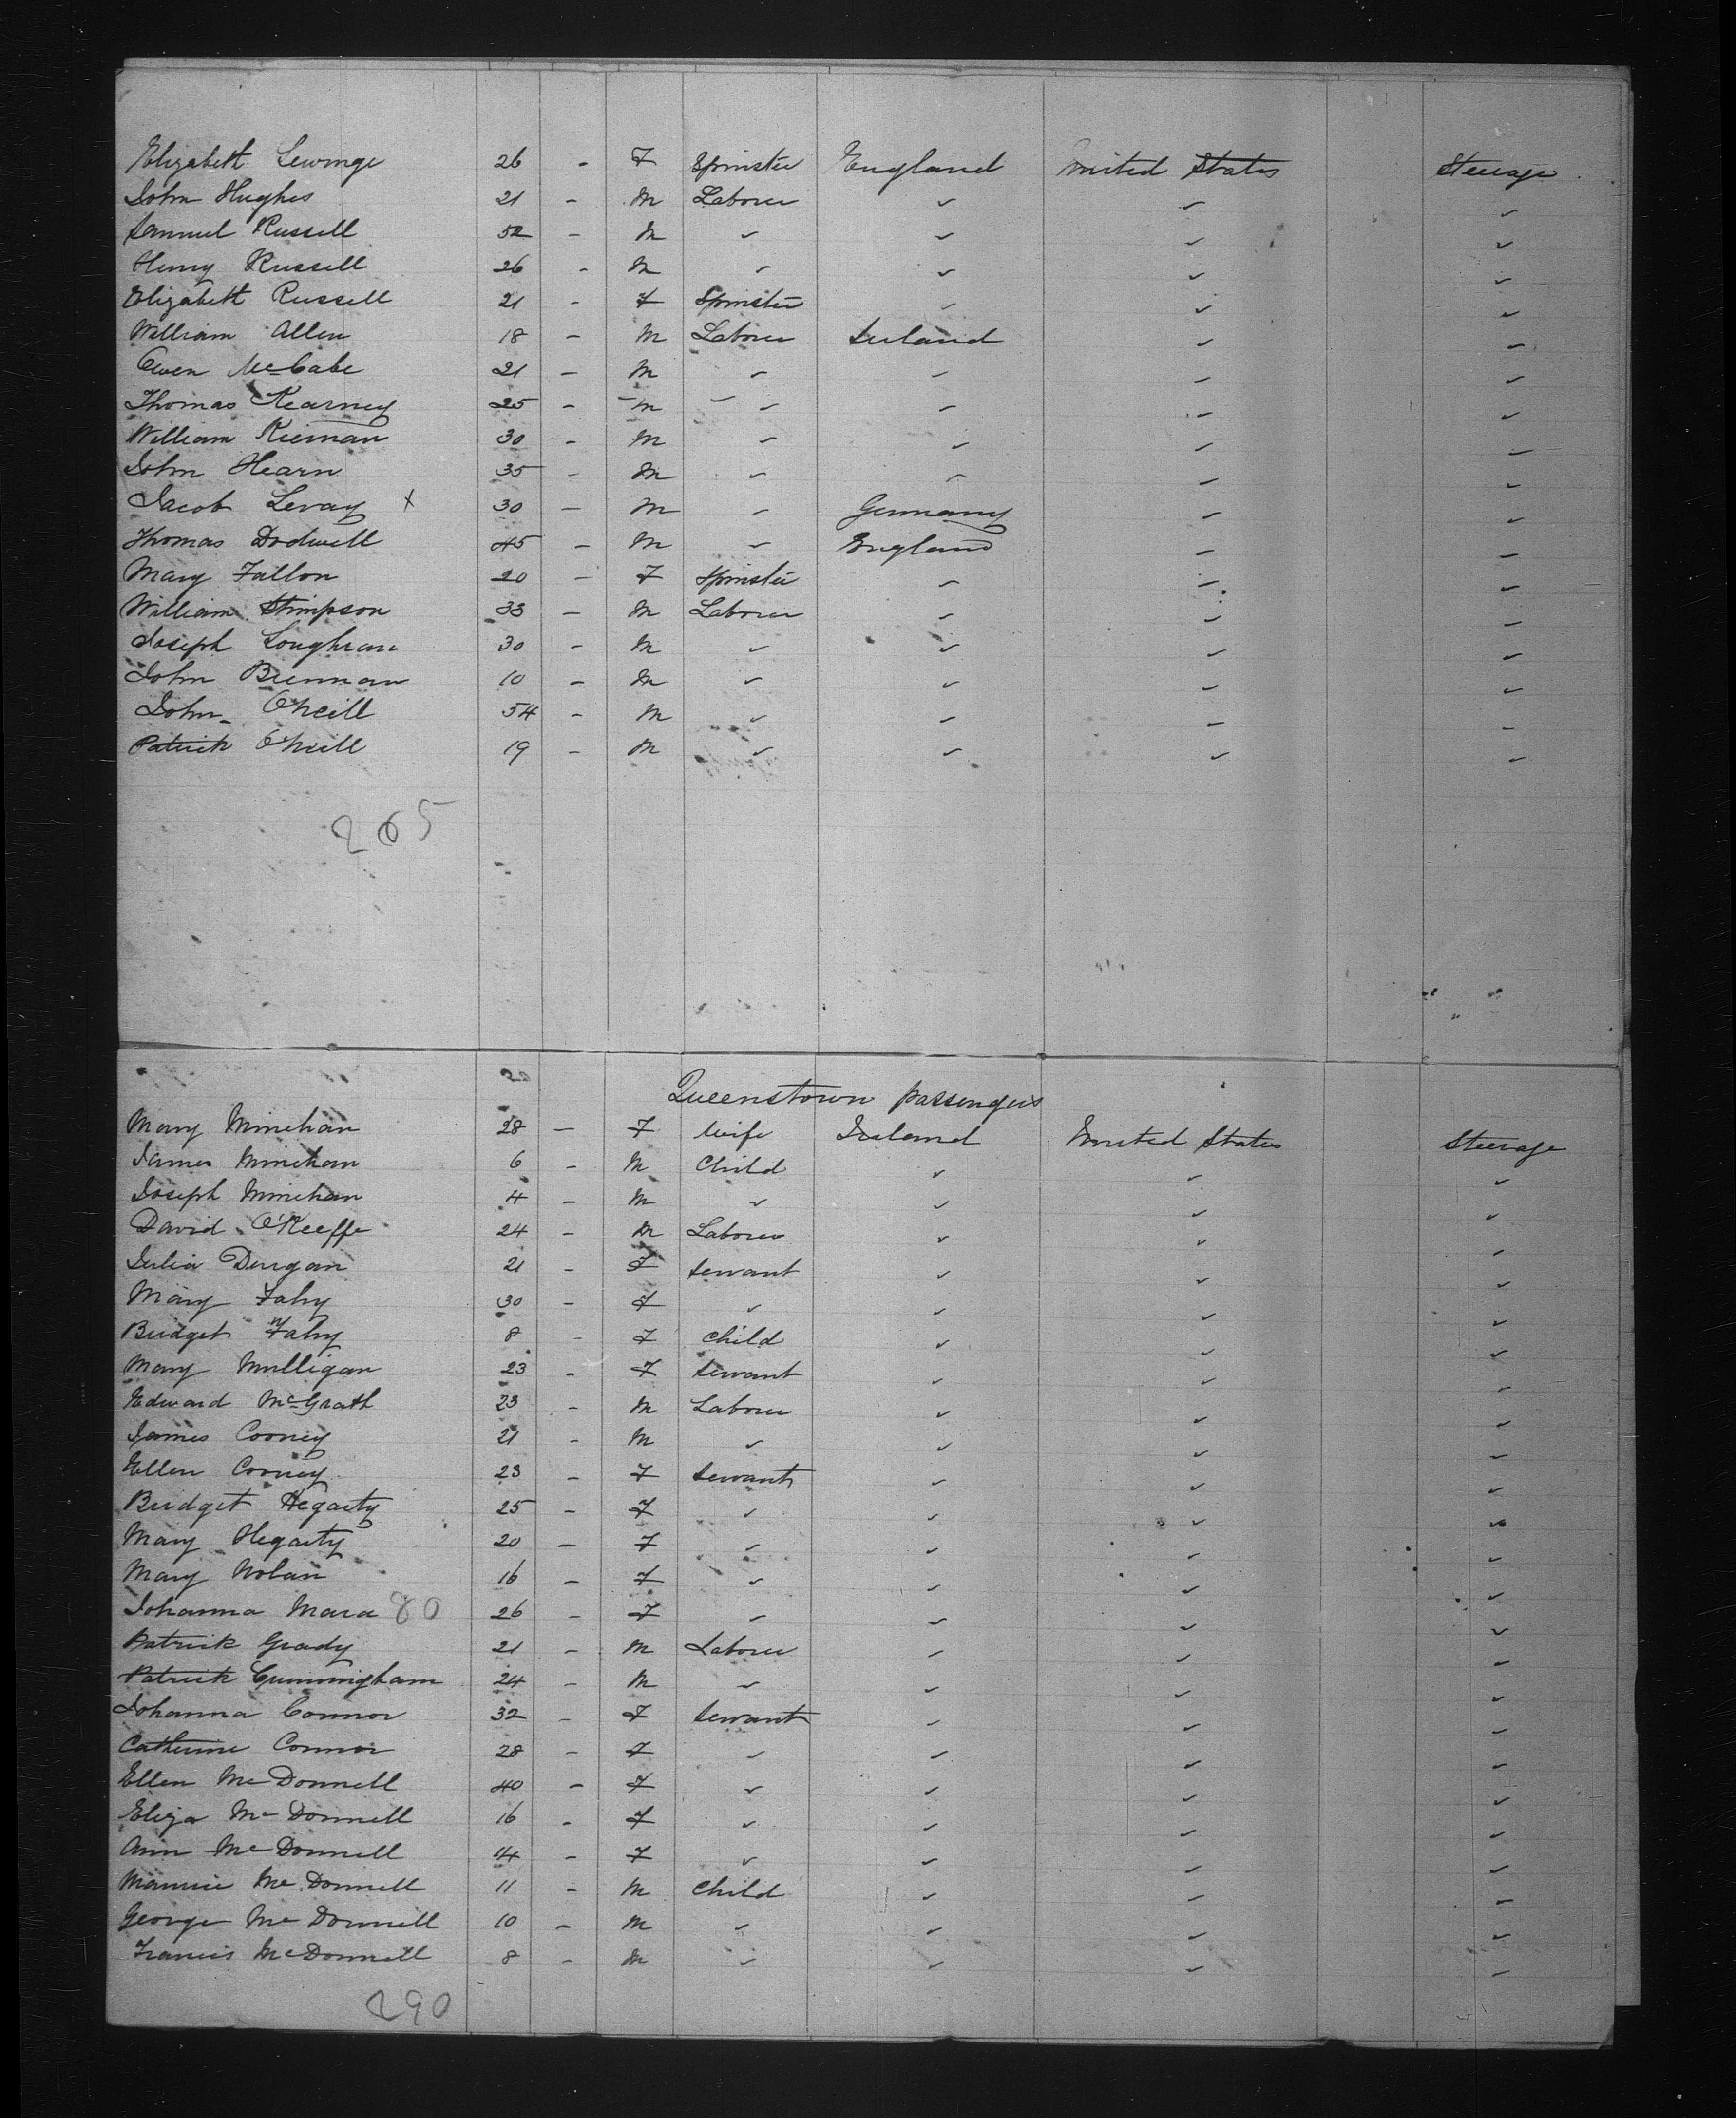 Elizabeth Lewinge 26 - F Spinster England United States Steerage
John Hughes 21 - M Laborer ✓ ✓ ✓
Samuel Russell 52 - M ✓ ✓ ✓ ✓
Henry Russell 26 - M ✓ ✓ ✓ ✓
Elizabeth Russell 21 - F Spinster ✓ ✓ ✓
William Allen 18 - M Laborer Ireland ✓ ✓
Owen McCabe 21 - M ✓ ✓ ✓ ✓
Thomas Kearney 25 - M ✓ ✓ ✓ ✓
William Kiernan 30 - M ✓ ✓ ✓ ✓
John Hearn 35 - M ✓ ✓ ✓ ✓
Jacob Levay x 30 - M ✓ Germany ✓ ✓
Thomas Dodwell 45 - M ✓ England ✓ ✓
Mary Fallon 20 - F Spinster ✓ ✓ ✓
William Stimpson 33 - M Laborer ✓ ✓ ✓
Joseph Loughran 30 - M ✓ ✓ ✓ ✓
John Brennan 10 - M ✓ ✓ ✓ ✓
John O'Neill 54 - M ✓ ✓ ✓ ✓
Patrick O'Neill 19 - M ✓ ✓ ✓ ✓
265
Queenstown passengers
Mary Minehan 28 - F Wife Ireland United States Steerage
James Minehan 6 - M Child ✓ ✓ ✓
Joseph Minehan 4 - M ✓ ✓ ✓ ✓
David O'Keeffe 24 - M Laborer ✓ ✓ ✓
Julia Durgan 21 - F Servant ✓ ✓ ✓
Mary Fahy 30 - F ✓ ✓ ✓ ✓
Bridget Fahy 8 - F Child ✓ ✓ ✓
Mary Mulligan 23 - F Servant ✓ ✓ ✓
Edward McGrath 23 - M Laborer ✓ ✓ ✓
James Cooney 21 - M ✓ ✓ ✓ ✓
Ellen Cooney 23 - F Servant ✓ ✓ ✓
Bridget Hegarty 25 - F ✓ ✓ ✓ ✓
Mary Hegarty 20 - F ✓ ✓ ✓ ✓
Mary Nolan 16 - F ✓ ✓ ✓ ✓
Johanna Mara 80 26 - F ✓ ✓ ✓ ✓
Patrick Grady 21 - M Laborer ✓ ✓ ✓
Patrick Cunningham 24 - M ✓ ✓ ✓ ✓
Johanna Connor 32 - F Servant ✓ ✓ ✓
Catherine Connor 28 - F ✓ ✓ ✓ ✓
Ellen McDonnell 40 - F ✓ ✓ ✓ ✓
Eliza McDonnell 16 - F ✓ ✓ ✓ ✓
Ann McDonnell 14 - F ✓ ✓ ✓ ✓
Maurice McDonnell 11 - M Child ✓ ✓ ✓
George McDonnell 10 - M ✓ ✓ ✓ ✓
Francis McDonnell 8 - M ✓ ✓ ✓ ✓
290